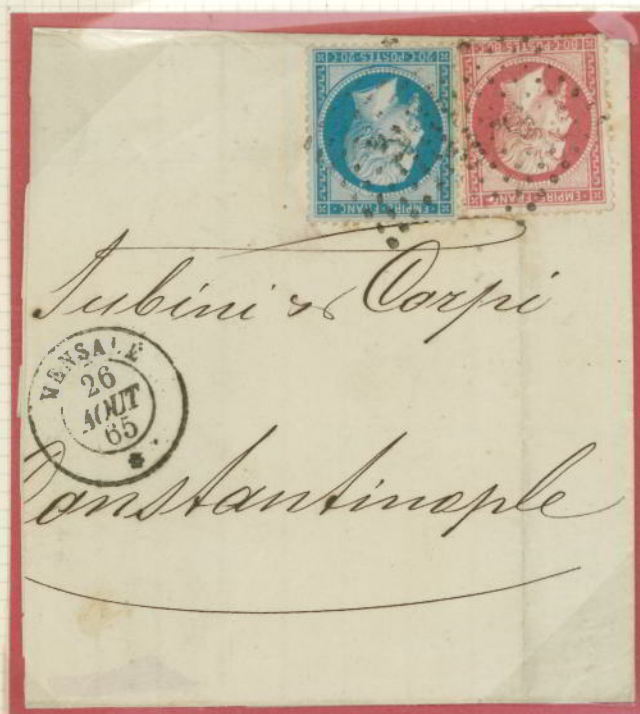 20·C·POSTES·20·C
EMPIRE FRANC
80·C·POSTES·80·C
EMPIRE FRANC
Tubini & Corpi
MENSALE
26
AOUT
65
Constantinople